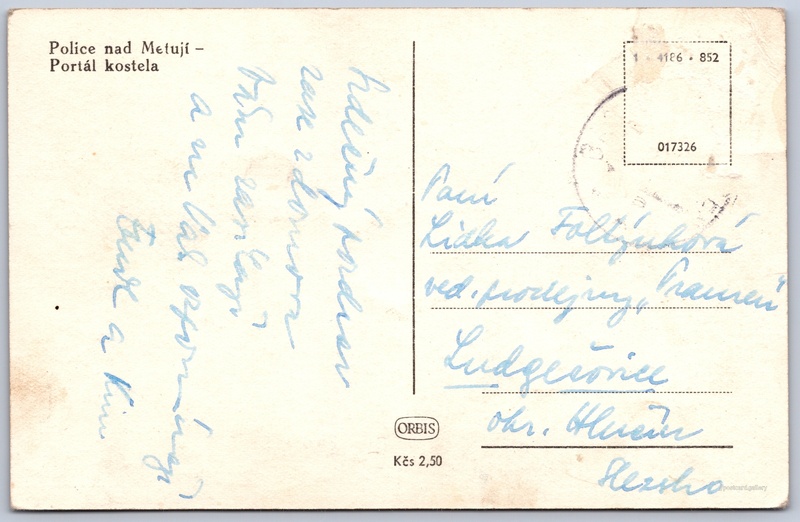 Police nad Metují –
Portál kostela
Srdečný pozdrav
zase z domova
Vám zasílají
a na Vás vzpomínají
a
1 • 4186 • 852
017326
Paní
Lidka Foltýnková
ved. prodejny „Pramen"
Ludgeřovice
okr. Hlučín
Slezsko
ORBIS
Kčs 2,50